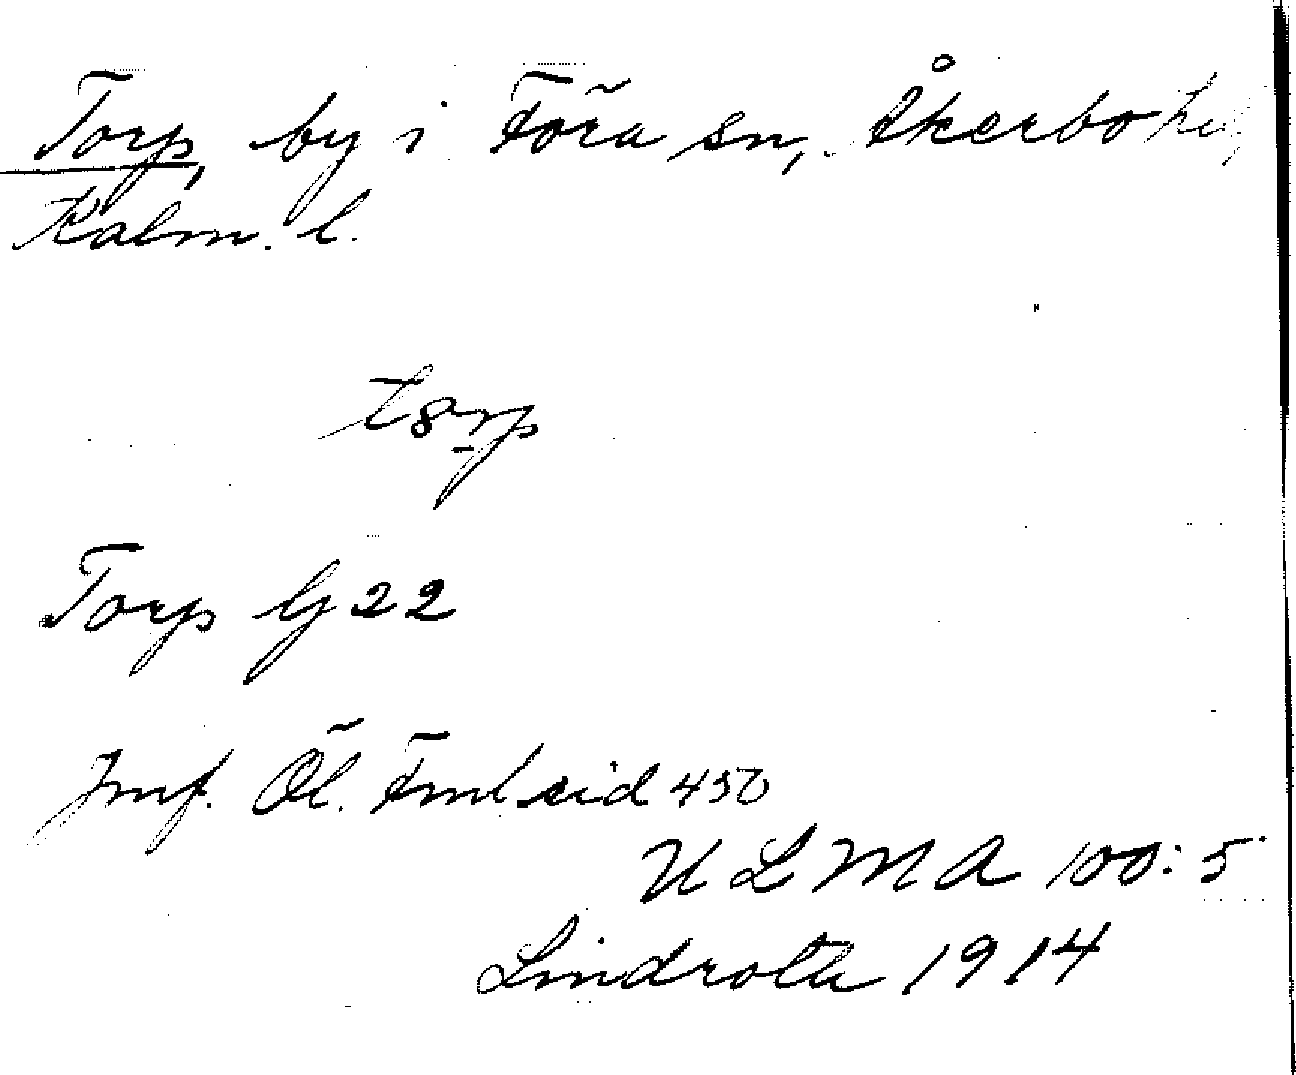 Torp, by i Föra sn, Åkerbo hd,
Kalm. l.
t8rp
Torp G 22
Jmf. Öl. Fml. sid 450
ULMA 100:5
Lindroth 1914